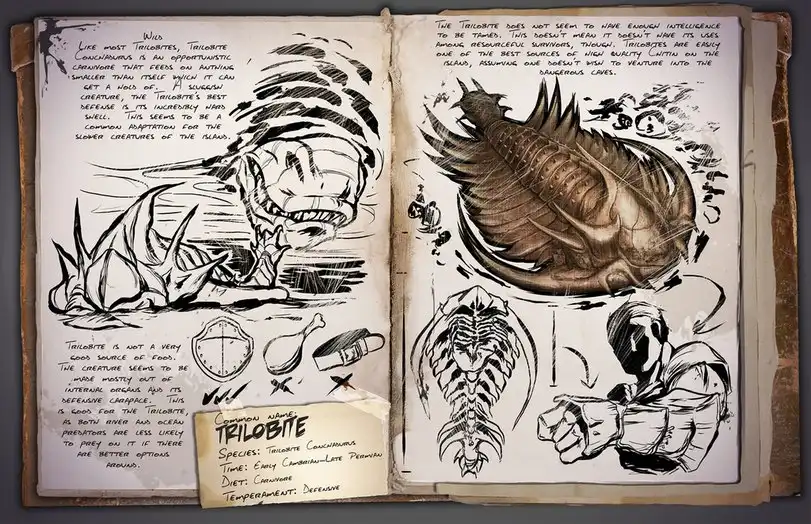 Wild
Like most Trilobites, Trilobite
Conchaurus is an opportunistic
carnivore that feeds on anything
smaller than itself which it can
get a hold of. A sluggish
creature, the Trilobite's best
defense is its incredibly hard
shell. This seems to be a
common adaptation for the
slower creatures of the island.
Trilobite is not a very
good source of food.
The creature seems to be
made mostly out of
internal organs and its
defensive carapace. This
is good for the Trilobite,
as both river and ocean
predators are less likely
to prey on it if there
are better options
around.
Common name:
TRILOBITE
Species: Trilobite Conchaurus
Time: Early Cambrian-Late Permian
Diet: Carnivore
Temperament: Defensive
The Trilobite does not seem to have enough intelligence
to be tamed. This doesn't mean it doesn't have its uses
among resourceful survivors, though. Trilobites are easily
one of the best sources of high quality Chitin on the
island, assuming one doesn't wish to venture into the
dangerous caves.